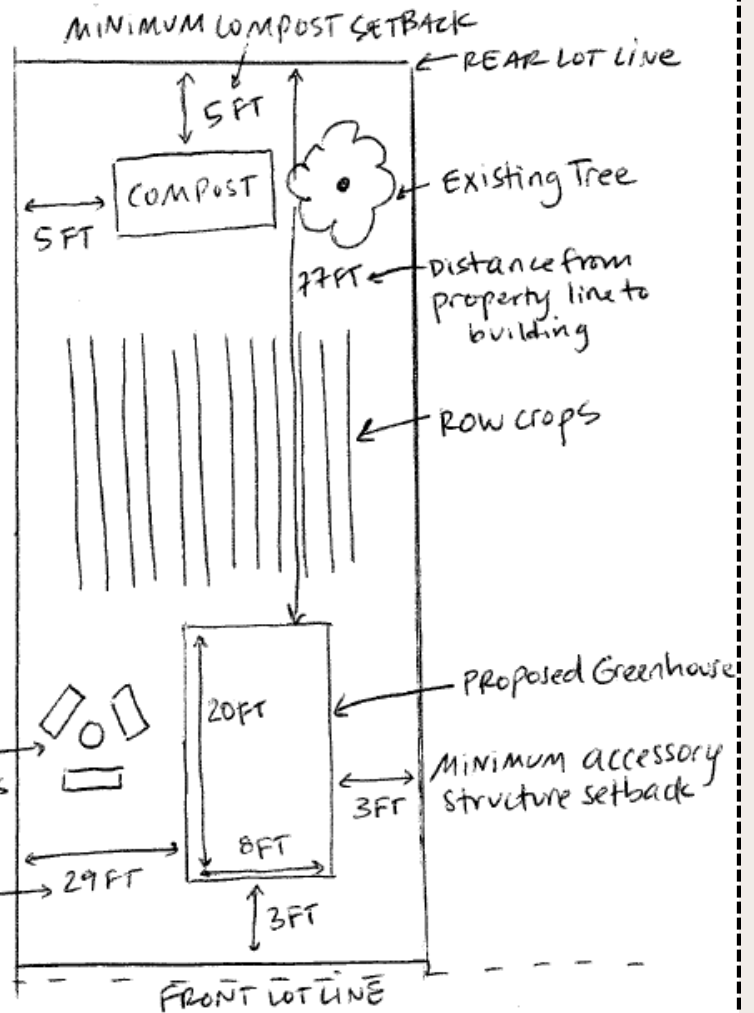 MINIMUM COMPOST SETBACK
REAR LOT LINE
5 FT
COMPOST
Existing Tree
5 FT
77FT
Distance from
property line to
building
ROW crops
20FT
PROPOSED Greenhouse
MINIMUM accessory
structure setback
3FT
s
8FT
29 FT
3FT
FRONT LOT LINE